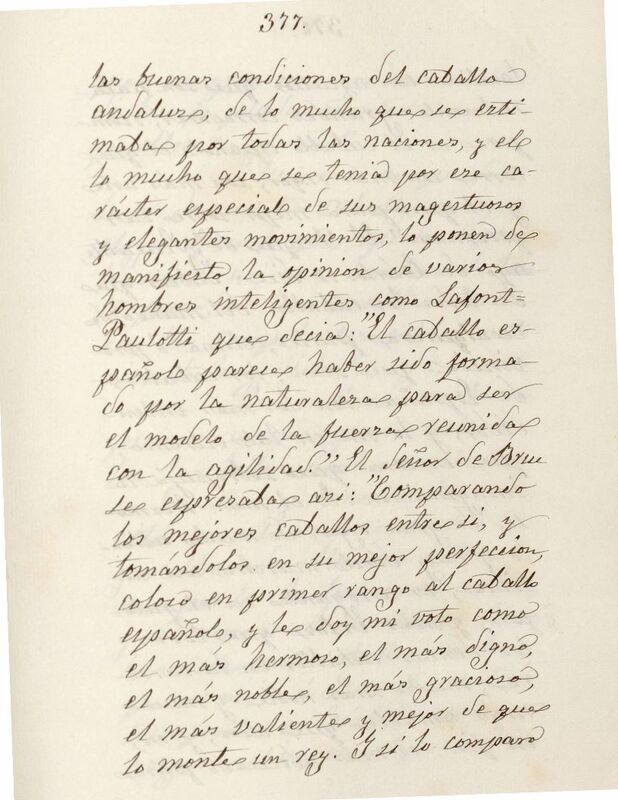 377.
las buenas condiciones del caballo
andaluz, de lo mucho que se esti-
maba por todas las naciones, y el
lo mucho que se tenia por ese ca-
rácter especial de sus magestuosos
y elegantes movimientos, lo ponen de
manifiesto la opinion de varios
hombres inteligentes como Lafont=
Paulotti que decia: "El caballo es-
pañol parece haber sido forma-
do por la naturaleza para ser
el modelo de la fuerza reunida
con la agilidad." El Señor de Brue
se espresaba asi: "Comparando
los mejores caballos entre si, y
tomándolos en su mejor perfeccion,
coloco en primer rango al caballo
español, y le doy mi voto como
el más hermoso, el más digno,
el más noble, el más gracioso,
el más valiente y mejor de que
lo monte un rey. Y si lo comparo